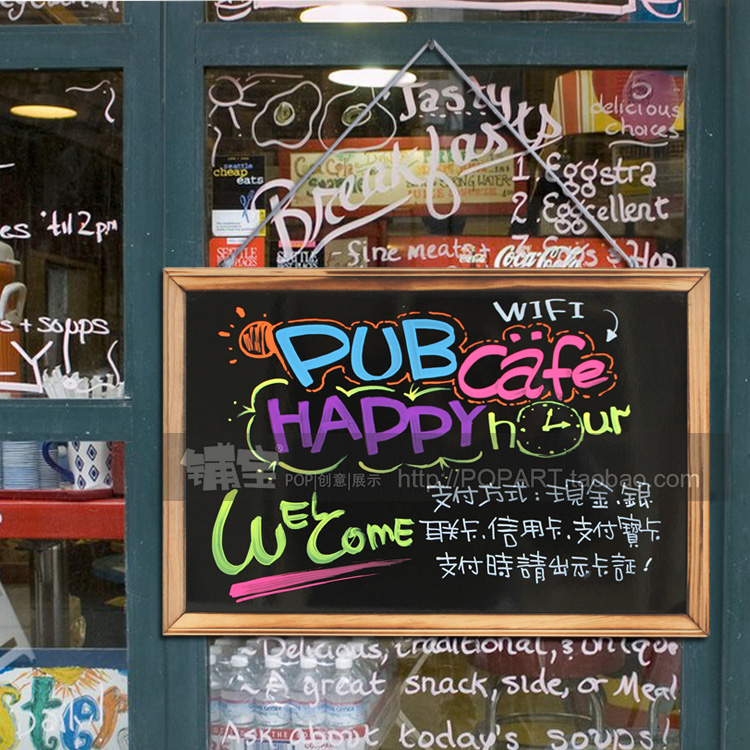 Welcome
Tasty
Breakfasts
5
delicious
choices
1 Eggstra
2 Eggcellent
- fine meats +
Coca-Cola
seattle
cheap
eats
'til 2pm
+ soups
WIFI
PUB Cafe
HAPPY hour
铺宝 POP|创意|展示 http://POPART.taobao.com
WELCOME
支付方式：現金.銀
联卡.信用卡.支付寶卡
支付時請出示卡証！
~Delicious, traditional, & unique
~A great snack, side, or Meal
Ask about today's soups!